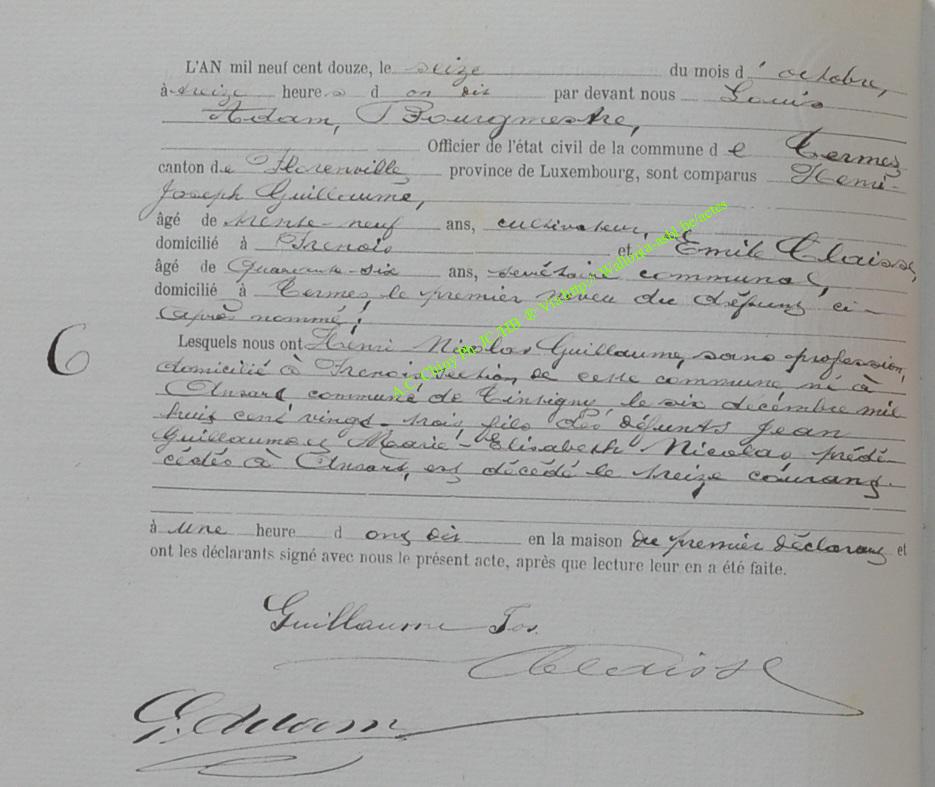 L'AN mil neuf cent douze, le seize du mois d'octobre,
à seize heures d ont dit par devant nous Louis
Adam, Bourgmestre,
Officier de l'état civil de la commune de Termes
canton de Florenville province de Luxembourg, sont comparus Henri
Joseph Guillaume,
âgé de trente-neuf ans, cultivateur,
domicilié à Frenois et Emile Claisse,
âgé de quarante-six ans, secrétaire communal,
domicilié à Termes le premier neveu du défunt ci-
après nommé;
Lesquels nous ont Henri Nicolas Guillaume, sans profession,
domicilié à Frenois section de cette commune né à
Ansart commune de Tintigny, le six décembre mil
huit cent vingt-trois fils des défunts Jean
Guillaume et Marie-Elisabeth Nicolas prédé-
cédés à Ansart, est décédé le treize courant
à une heure d ont dit en la maison du premier déclarant et
ont les déclarants signé avec nous le présent acte, après que lecture leur en a été faite.
Guillaume Jos.
Claisse
Adam